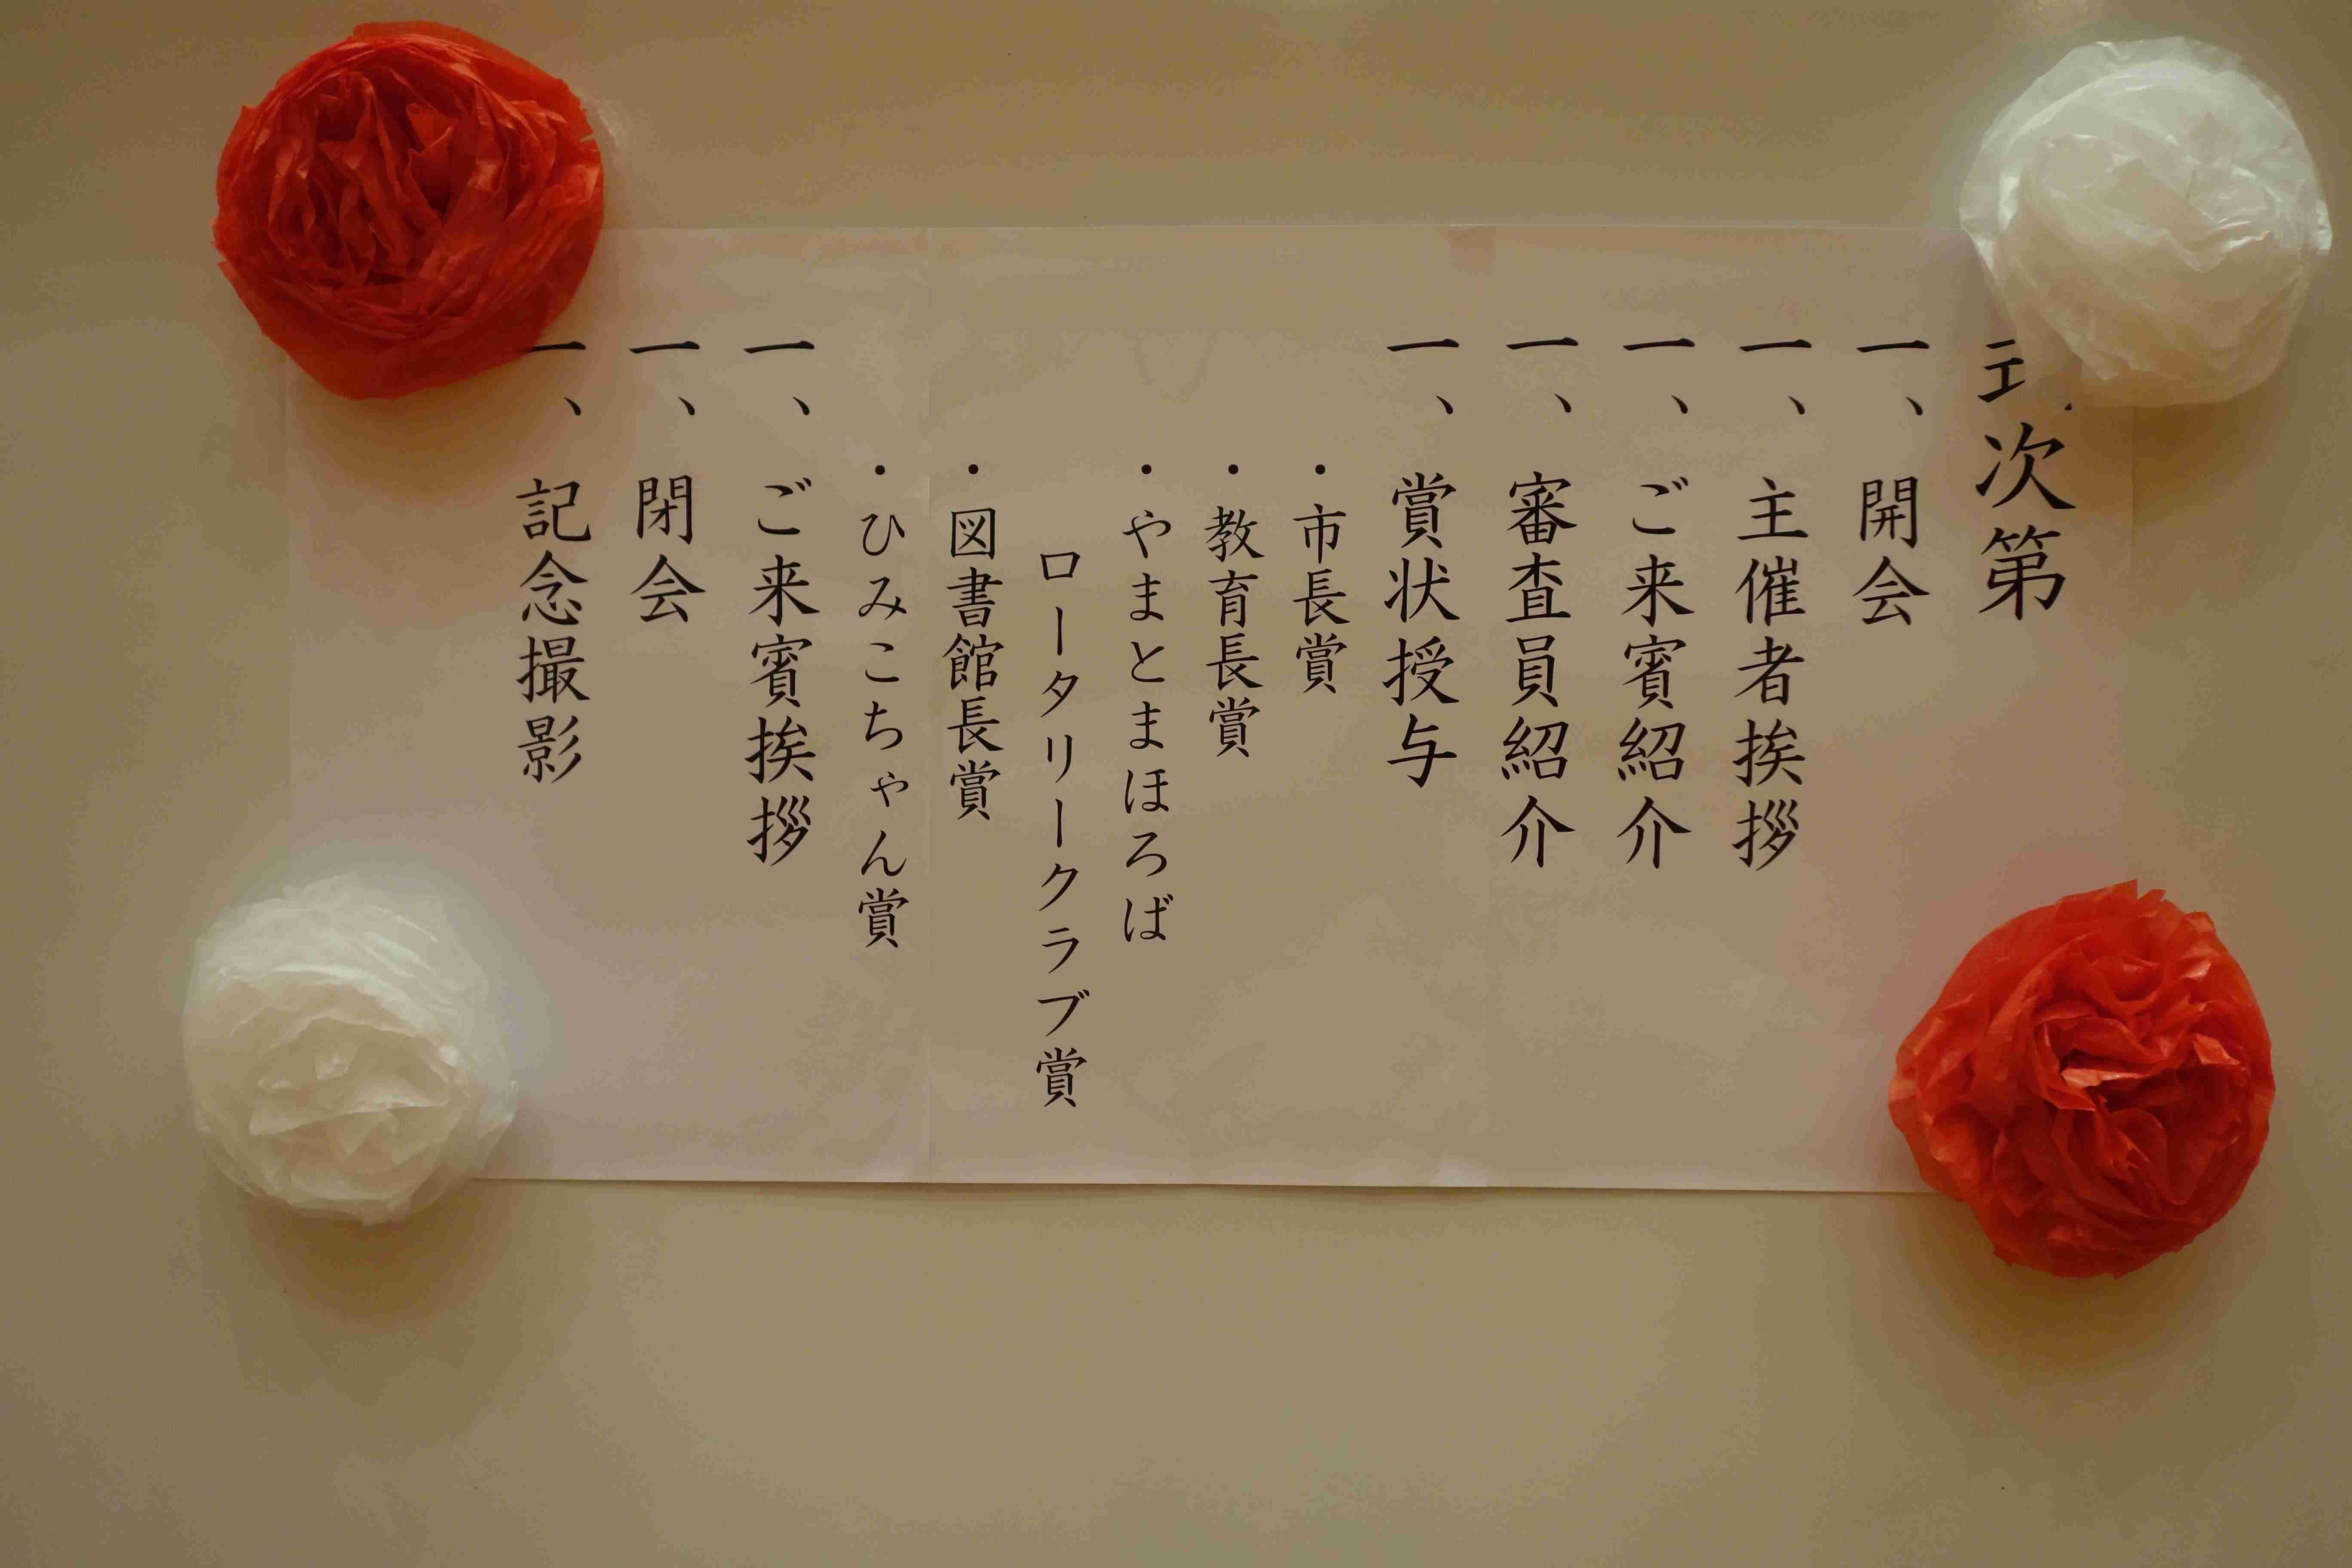 式次第
一、開会
一、主催者挨拶
一、ご来賓紹介
一、審査員紹介
一、賞状授与
・市長賞
・教育長賞
・やまとまほろば
ロータリークラブ賞
・図書館長賞
・ひみこちゃん賞
一、ご来賓挨拶
一、閉会
一、記念撮影